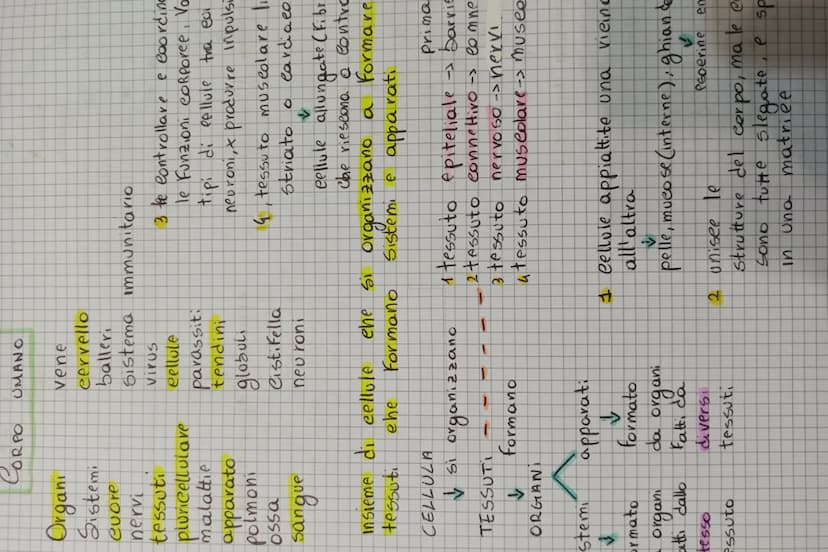 CORPO UMANO
Organi
Sistemi
cuore
nervi
tessuti
pluricellulare
malattie
apparato
polmoni
ossa
sangue
vene
cervello
batteri
sistema immunitario
virus
cellule
parassiti
tendini
globuli
cistifella
neuroni
3 controllare e coordina
le funzioni corporee.
tipi di cellule tra cui
neuroni, x produrre impulsi
4, tessuto muscolare
striato o cardiaco
cellule allungate (Fibr
che riescono a contra
insieme di cellule che si organizzano a formare
tessuti che formano sistemi e apparati
CELLULA
si organizzano
TESSUTI
formano
ORGANI
prima
1 tessuto epiteliale → barrie
2 tessuto connettivo → conne
3 tessuto nervoso → nervi
4 tessuto muscolare → musco
stemi
ormato
organi
atti dallo
tesso
essuto
apparati
formato
da organi
fatti da
diversi
tessuti
1 cellule appiattite una vicina
all'altra
pelle, mucose (interne), ghiando
esocrine en
2 unisce le
strutture del corpo, ma le
sono tutte slegate, e sp
in una matrice